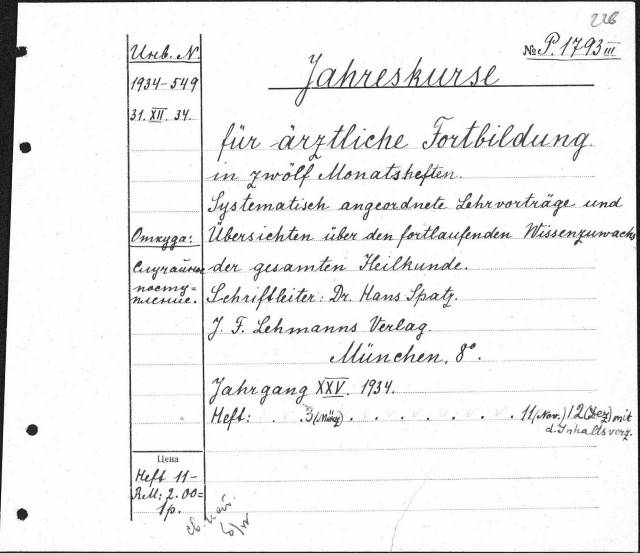 226
№ P. 1793 III
Jahreskurse
für ärztliche Fortbildung
in zwölf Monatsheften.
Systematisch angeordnete Lehrvorträge und
Übersichten über den fortlaufenden Wissenzuwachs
der gesamten Heilkunde.
Schriftleiter: Dr. Hans Spatz.
J. F. Lehmanns Verlag.
München, 8°.
Jahrgang XXV. 1934.
Heft: . . 3 (März) . . . . . . . 11 (Nov.) 12 (Dez) mit
d. Inhaltsverz.
Инв. N.
1934-549
31. XII. 34.
Откуда:
Случайное
посту-
пление.
Цена
Heft 11-
RM: 2.00=
1р.